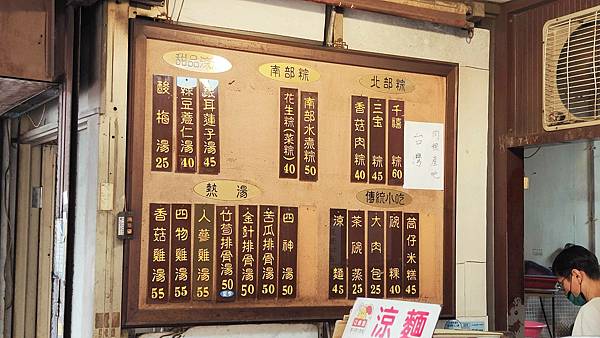 北部粽
千禧粽 60
三宝粽 45
香菇肉粽 40
南部粽
南部水煮粽 50
花生粽(菜粽) 40
甜品涼
銀耳蓮子湯 45
綠豆薏仁湯 40
酸梅湯 25
台灣
傳統小吃
筒仔米糕 45
碗粿 40
大肉包 25
茶碗蒸 25
涼麵
熱湯
四神湯 50
苦瓜排骨湯 50
金針排骨湯 50
竹筍排骨湯 50
人蔘雞湯 55
四物雞湯 55
香菇雞湯 55
涼麵